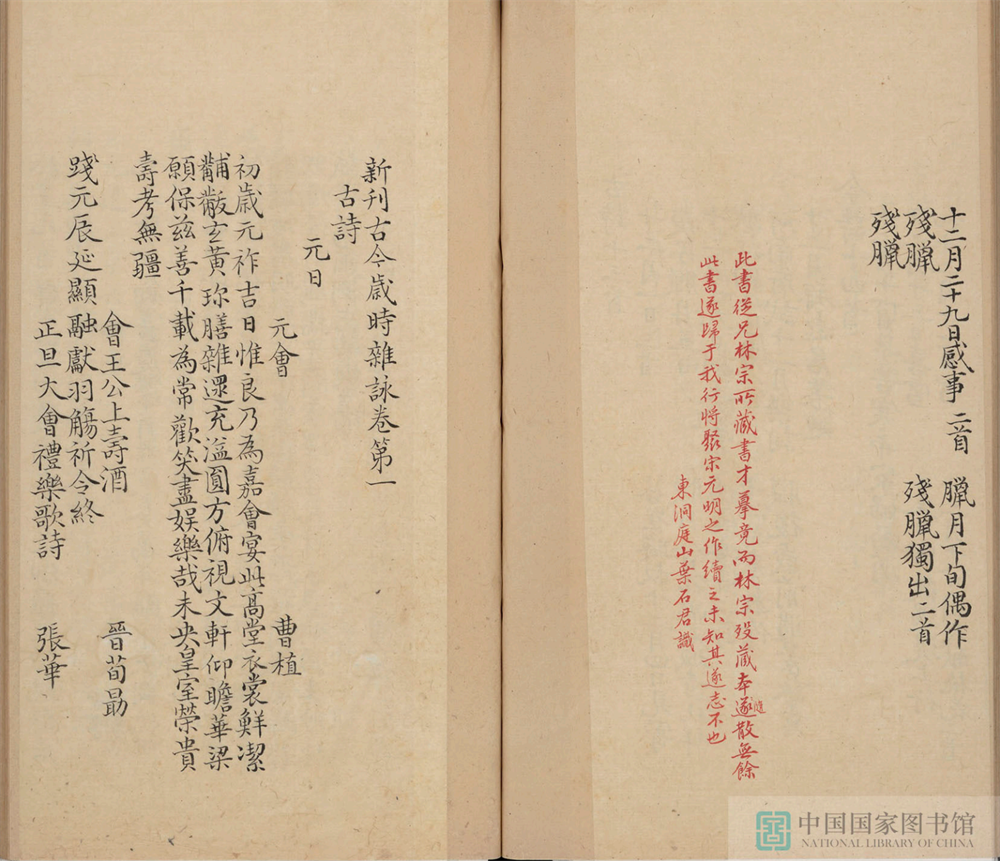 十二月二十九日感事 二首 臘月下旬偶作
殘臘 殘臘獨出二首
殘臘
此書從兄林宗所藏書才摹竟而林宗歿藏本遂散無餘
此書遂歸于我行將聚宋元明之作續之未知其遂志不也
東洞庭山葉石君識
新刊古今歲時雜詠卷第一
古詩
元日
元會 曹植
初歲元祚吉日惟良乃為嘉會宴此高堂衣裳鮮潔
黼黻玄黃珍膳雜還充溢圓方俯視文軒仰瞻華梁
願保茲善千載為常歡笑盡娛樂哉未央皇室榮貴
壽考無疆
會王公上壽酒 晉荀勗
踐元辰延顯融獻羽觴祈令終
正旦大會禮樂歌詩 張華
中国国家图书馆
NATIONAL LIBRARY OF CHINA